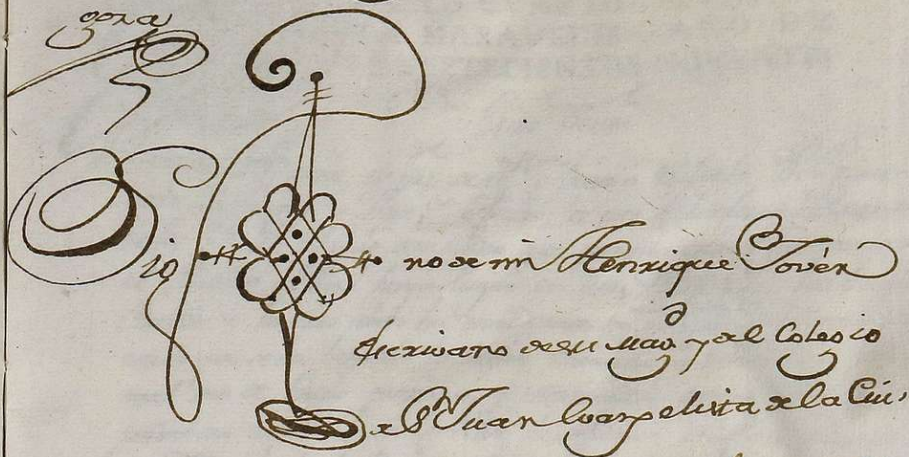 goza
Sig no de mi Henrique Jovér
Escrivano de su Magd y del Colegio
de Sn Juan Evangelista de la Ciu,